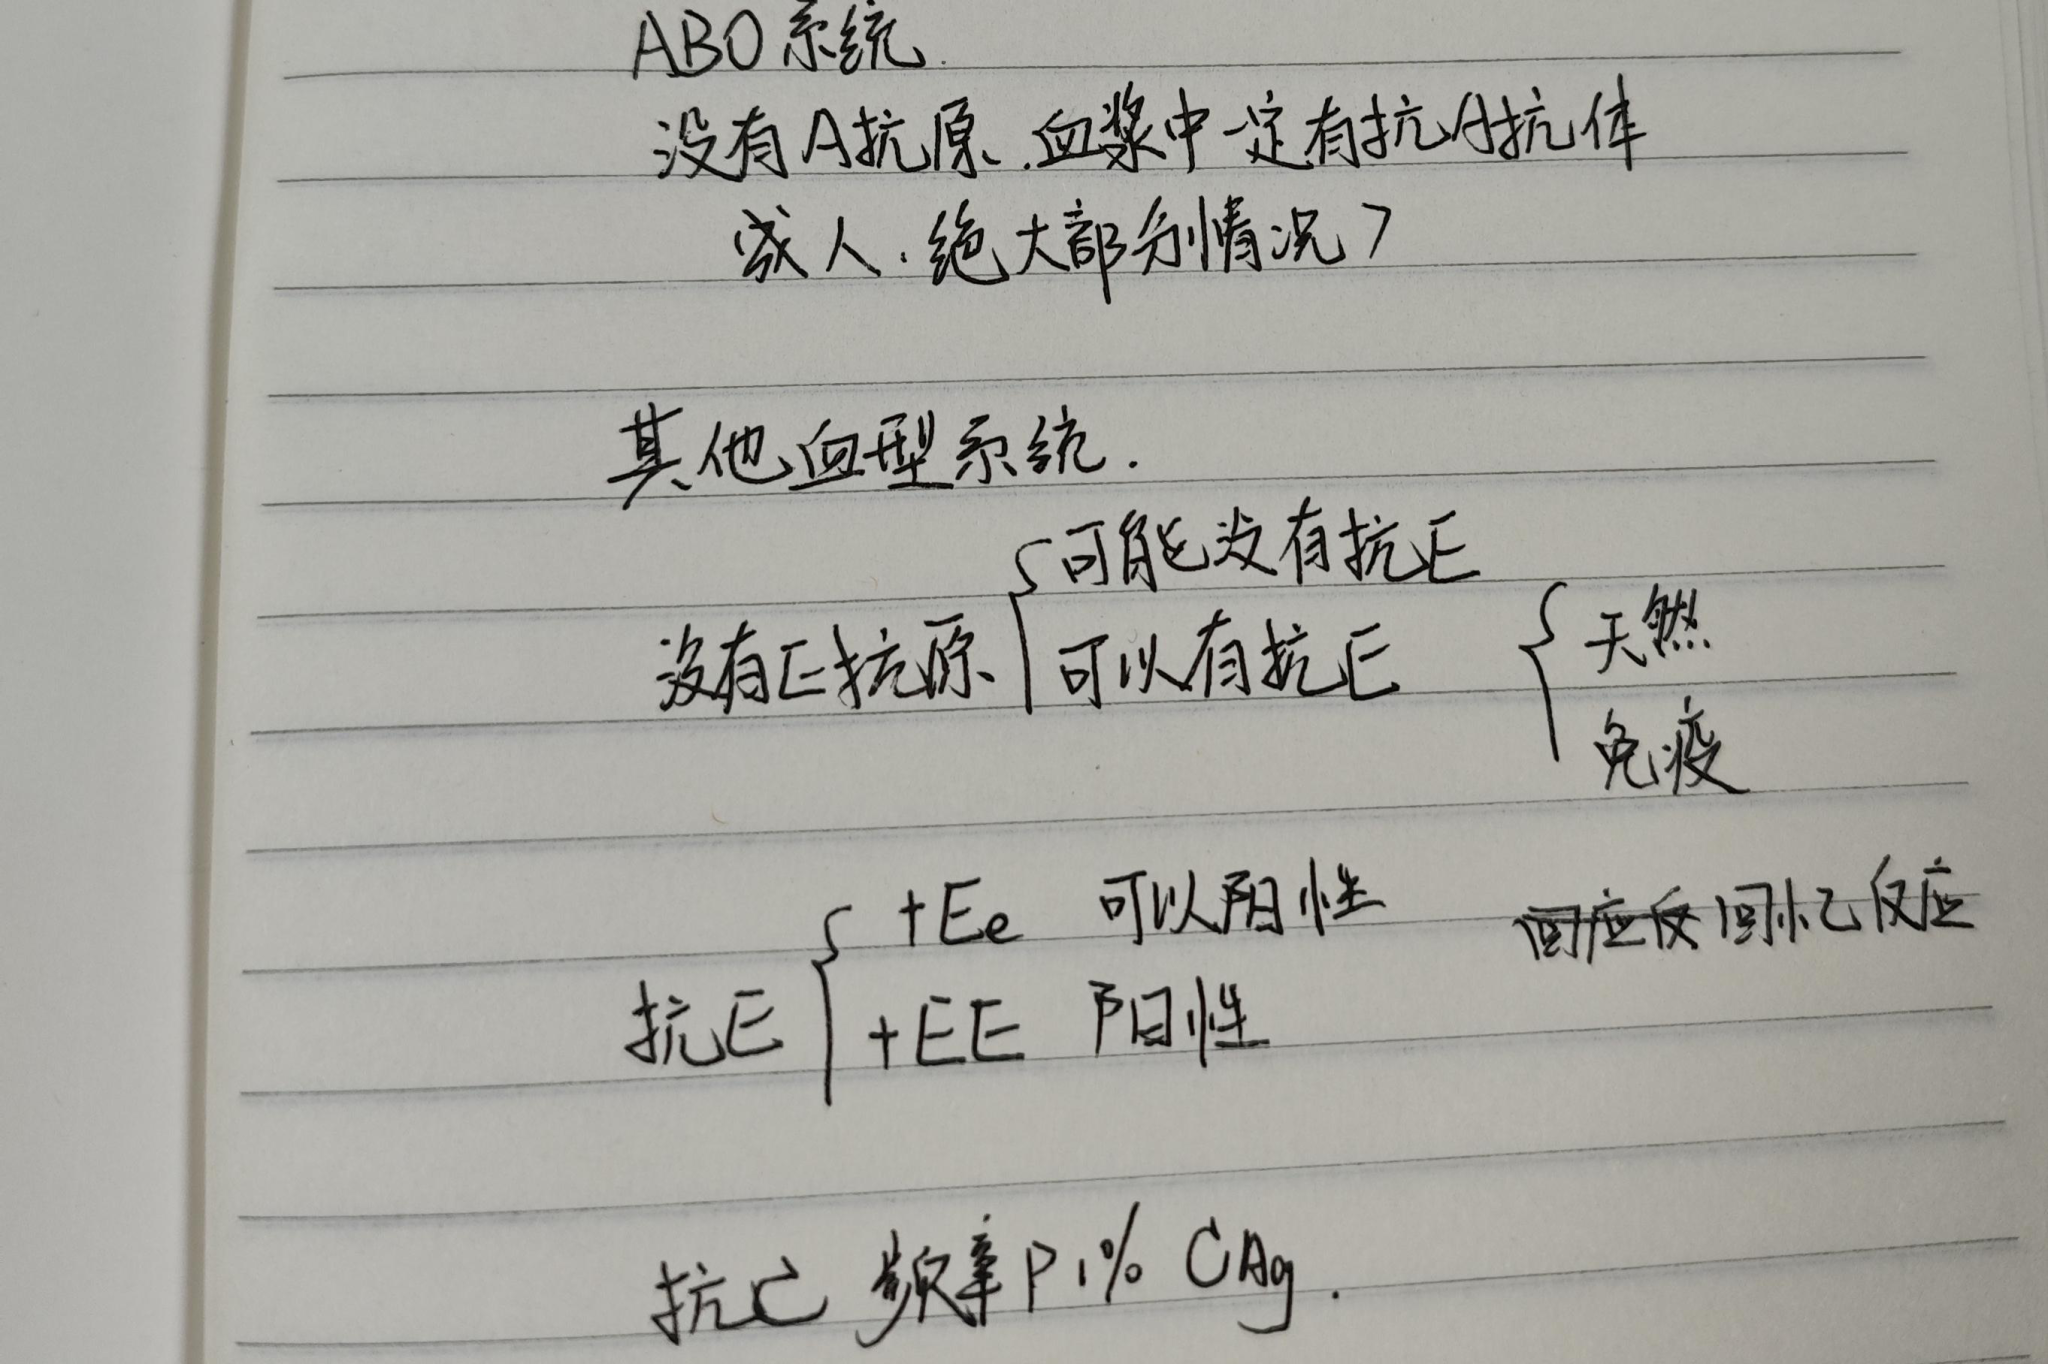 ABO系统.
没有A抗原.血浆中一定有抗A抗体
成人.绝大部分情况?
其他血型系统.
可能没有抗E
没有E抗原 可以有抗E
天然
免疫
+Ee 可以阳性 回忆反应
抗E
+EE 阳性
抗C 频率 91% CAg.